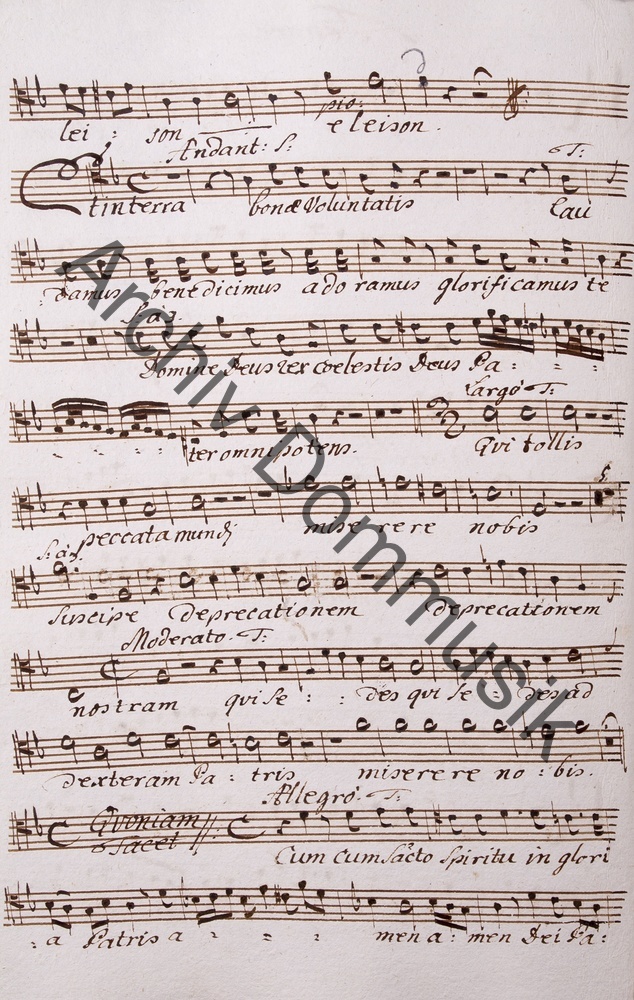 lei : son pio: eleison.
Andant: S: T:
Et in terra bonæ Voluntatis Lau
: damus benedicimus adoramus glorificamus te
Domine Deus rex coelestis Deus Pa : : :
Largo T:
ter omnipotens. Qvi tollis
peccata mundj miserere re nobis
5
Suscipe deprecationem deprecationem
Moderato. T:
nostram qui se : : des qui se : des ad
dexteram Pa : tris miserere re no : bis.
Allegro. T:
Qvoniam
tacet
Cum cum Sãcto Spiritu in glori
: a Patris a : : : men a : men Dei Pa:
Archiv Dommusik